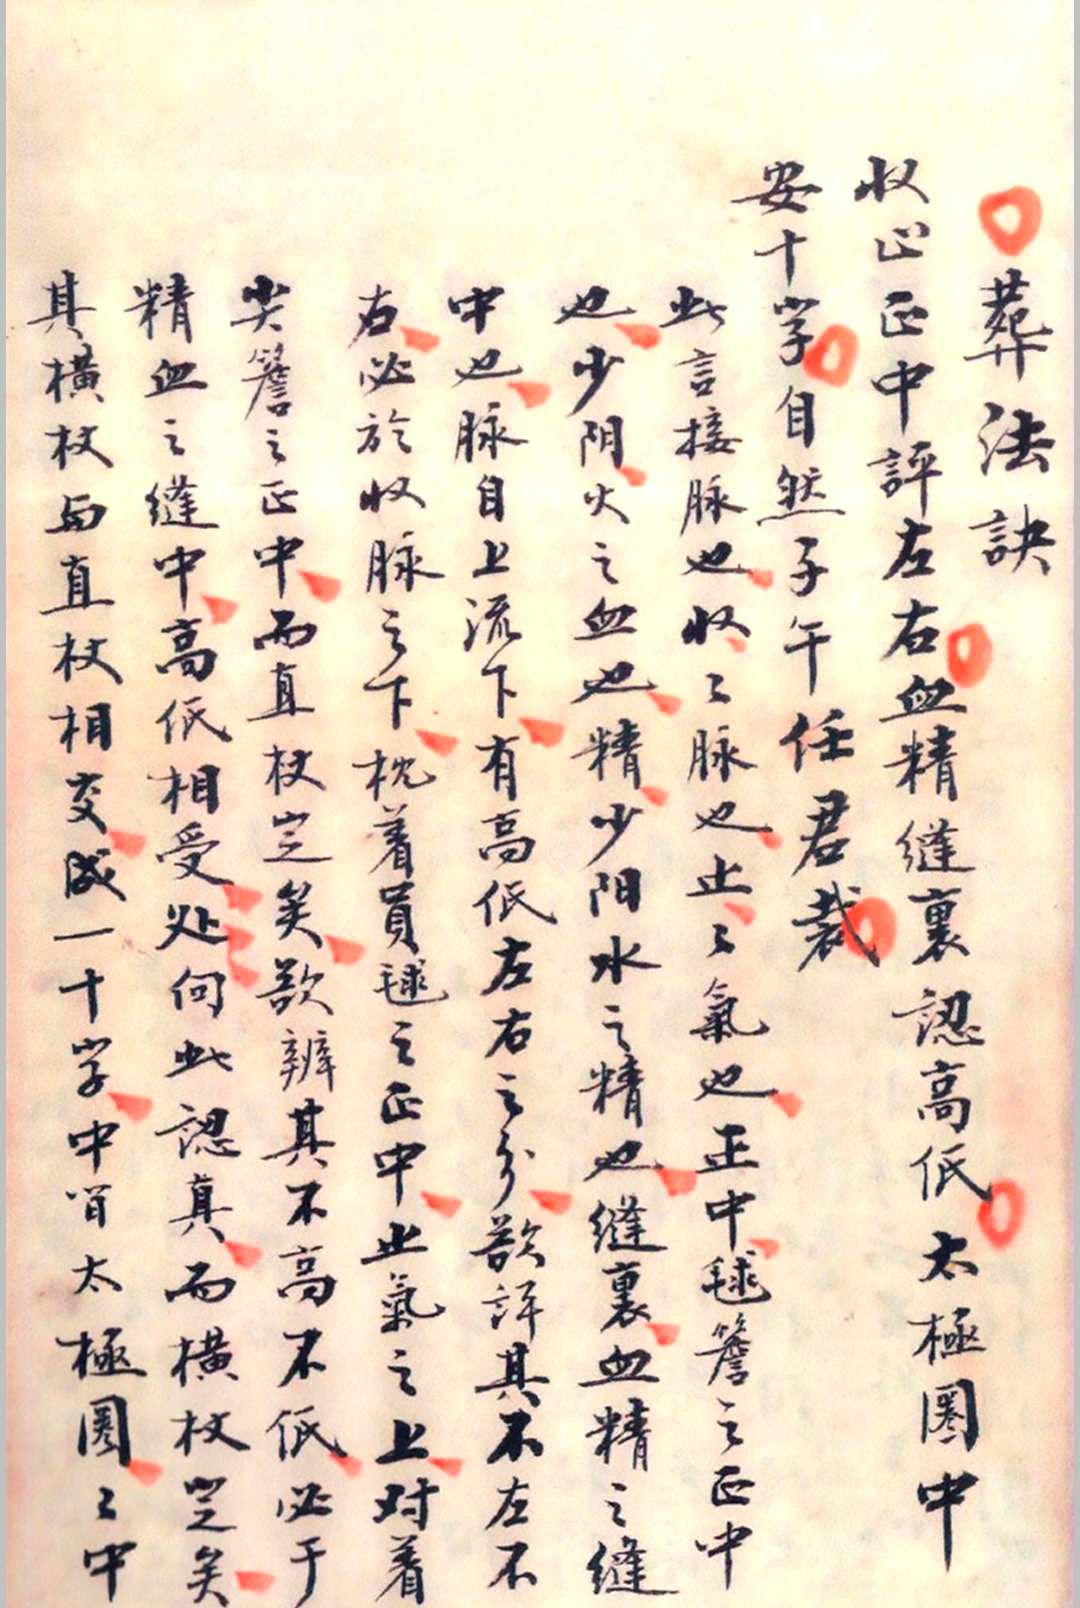 葬法訣
收止正中評左右血精縫裏認高低太極圈中
安十字自然子午任君裁
此言接脉也收〻脉也止〻氣也正中毬簷之正中
也少阴火之血也精少阳水之精也縫裏血精之縫
中也脉自上流下有高低左右之分欲評其不左不
右必於收脉之下枕着員毬之正中止氣之上对着
尖簷之正中而直杖定矣欲辨其不高不低必于
精血之縫中高低相受处向此認真而橫杖定矣
其橫杖与直杖相交成一十字中皆太極圈〻中